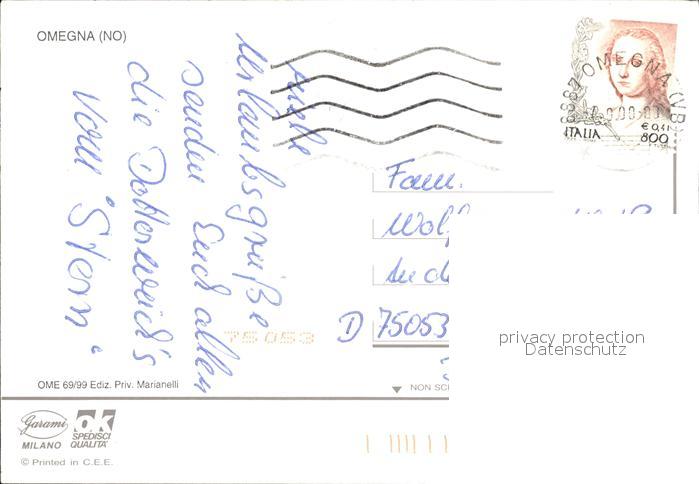 OMEGNA (NO)
Urlaubsgrüße
senden Euch allen
die Dotterweich's
vom "Stern"
OMEGNA (VB)
ITALIA
€ 0,41
800
Fam.
D 75053
75053
privacy protection
Datenschutz
OME 69/99 Ediz. Priv. Marianelli
NON SC
Garami
MILANO
ok
SPEDISCI
QUALITÀ
© Printed in C.E.E.